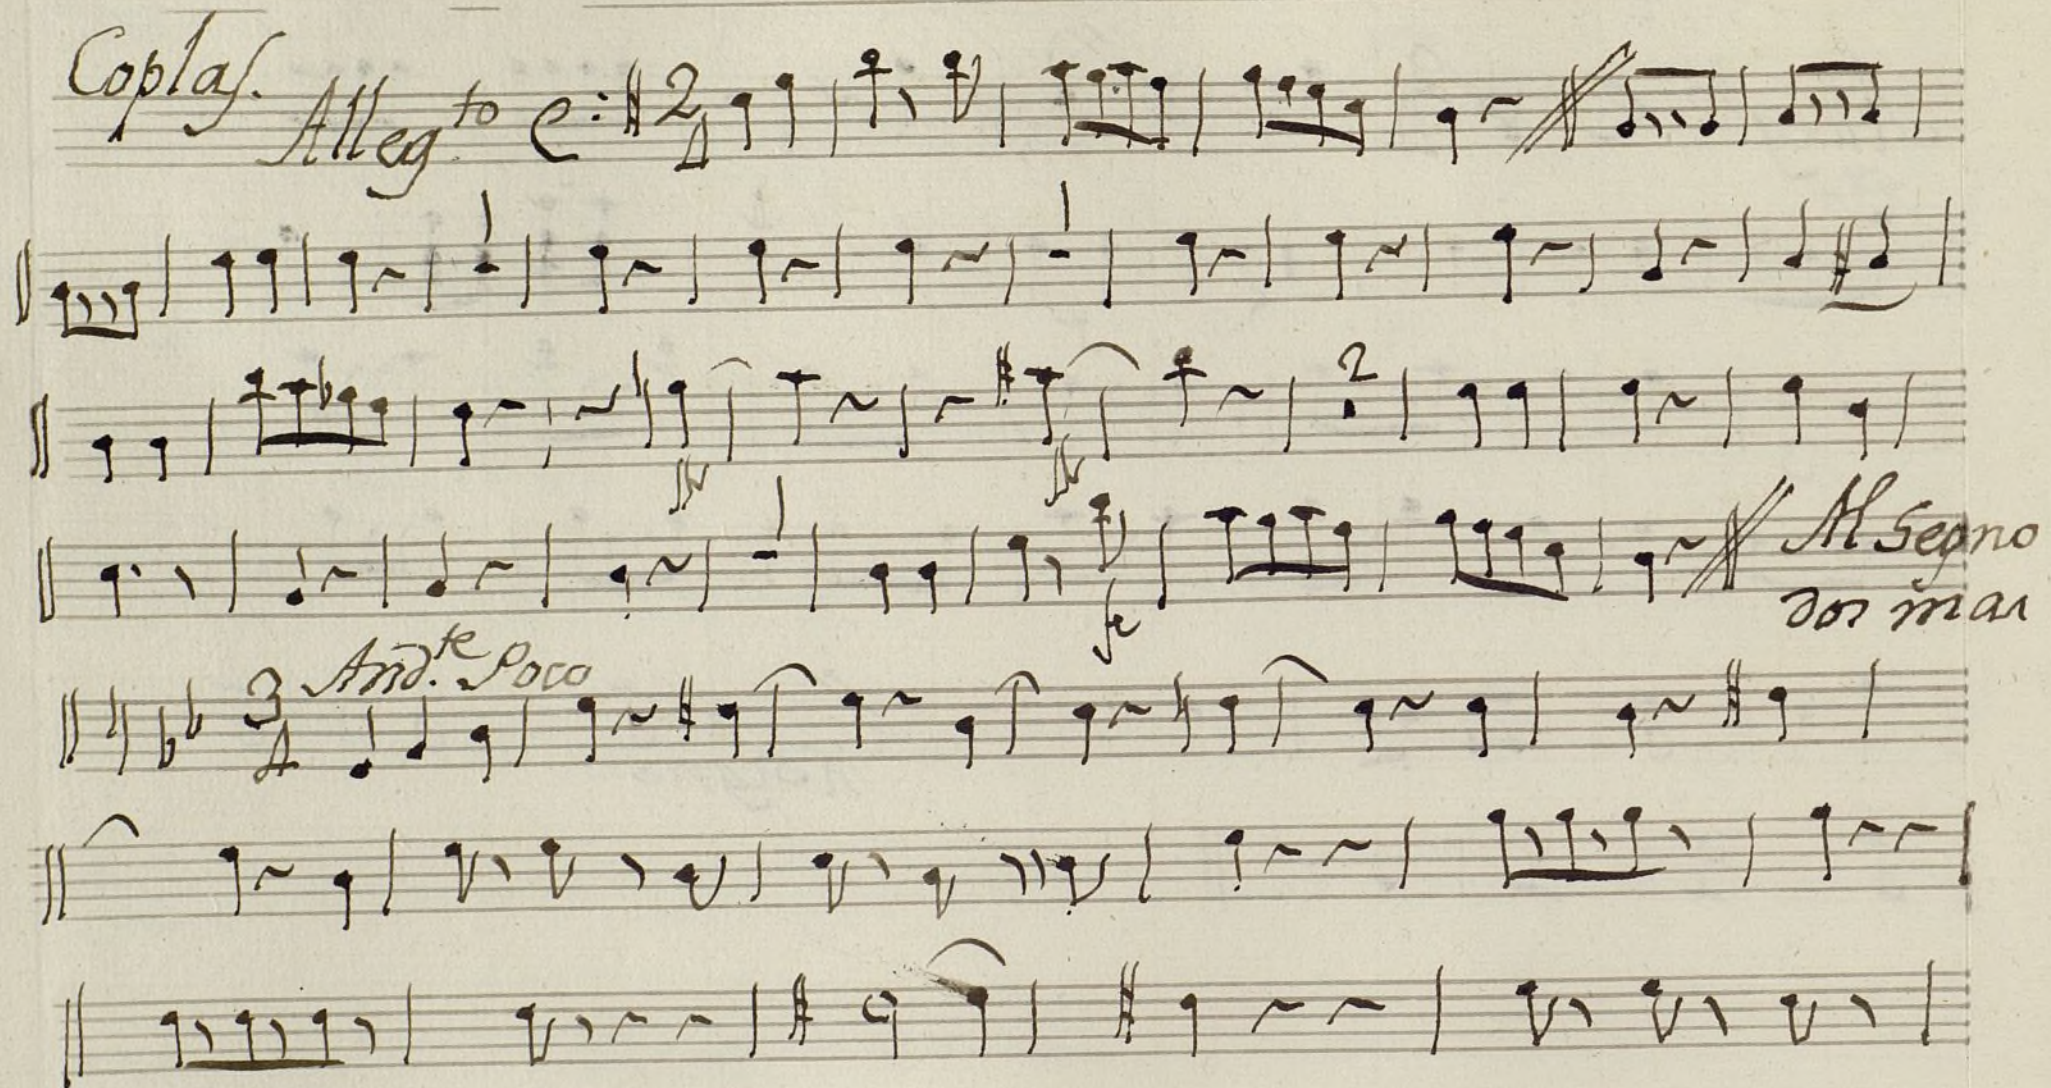 Coplas.
Alleg.to 2 4
1 1
2
fe
1
Al Segno
dos mas
3 4 And.te Poco